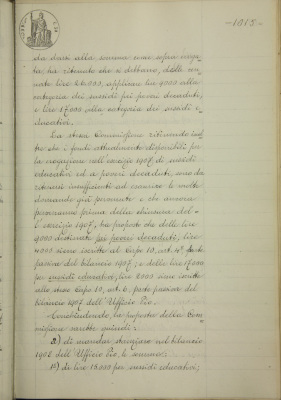 -1015-
da darsi alla somma come sopra
ta, ha ritenuto che si debbano, dalle
nute lire 26.000, applicare lire 9000 alla
categoria dei sussidii per poveri decaduti,
e lire 17000 alla categoria dei sussidi e-
ducativi.
La stessa Commissione ritenendo inol-
tre che i fondi attualmente disponibili per
la erogazione nell'esercizio 1907, di sussidi
educativi ed a poveri decaduti, sono da
ritenersi insufficienti ad esaurire le molte
domande già pervenute e che ancora
perverranno prima della chiusura del-
l'esercizio 1907, ha proposto che delle lire
9000 destinate pei poveri decaduti, lire
4000 siano iscritte al Capo 10, art. 4° parte
passiva del bilancio 1907; e delle lire 17000
per sussidi educativi, lire 2000 siano iscritte
allo stesso Capo 10, art. 6, parte passiva del
bilancio 1907 dell'Ufficio Pio.
Concludendo, la proposta della Com-
missione sarebbe quindi:
di stanziare nel bilancio
1908 dell'Ufficio Pio, le somme:
1°) di lire 15.000 per sussidi educativi;